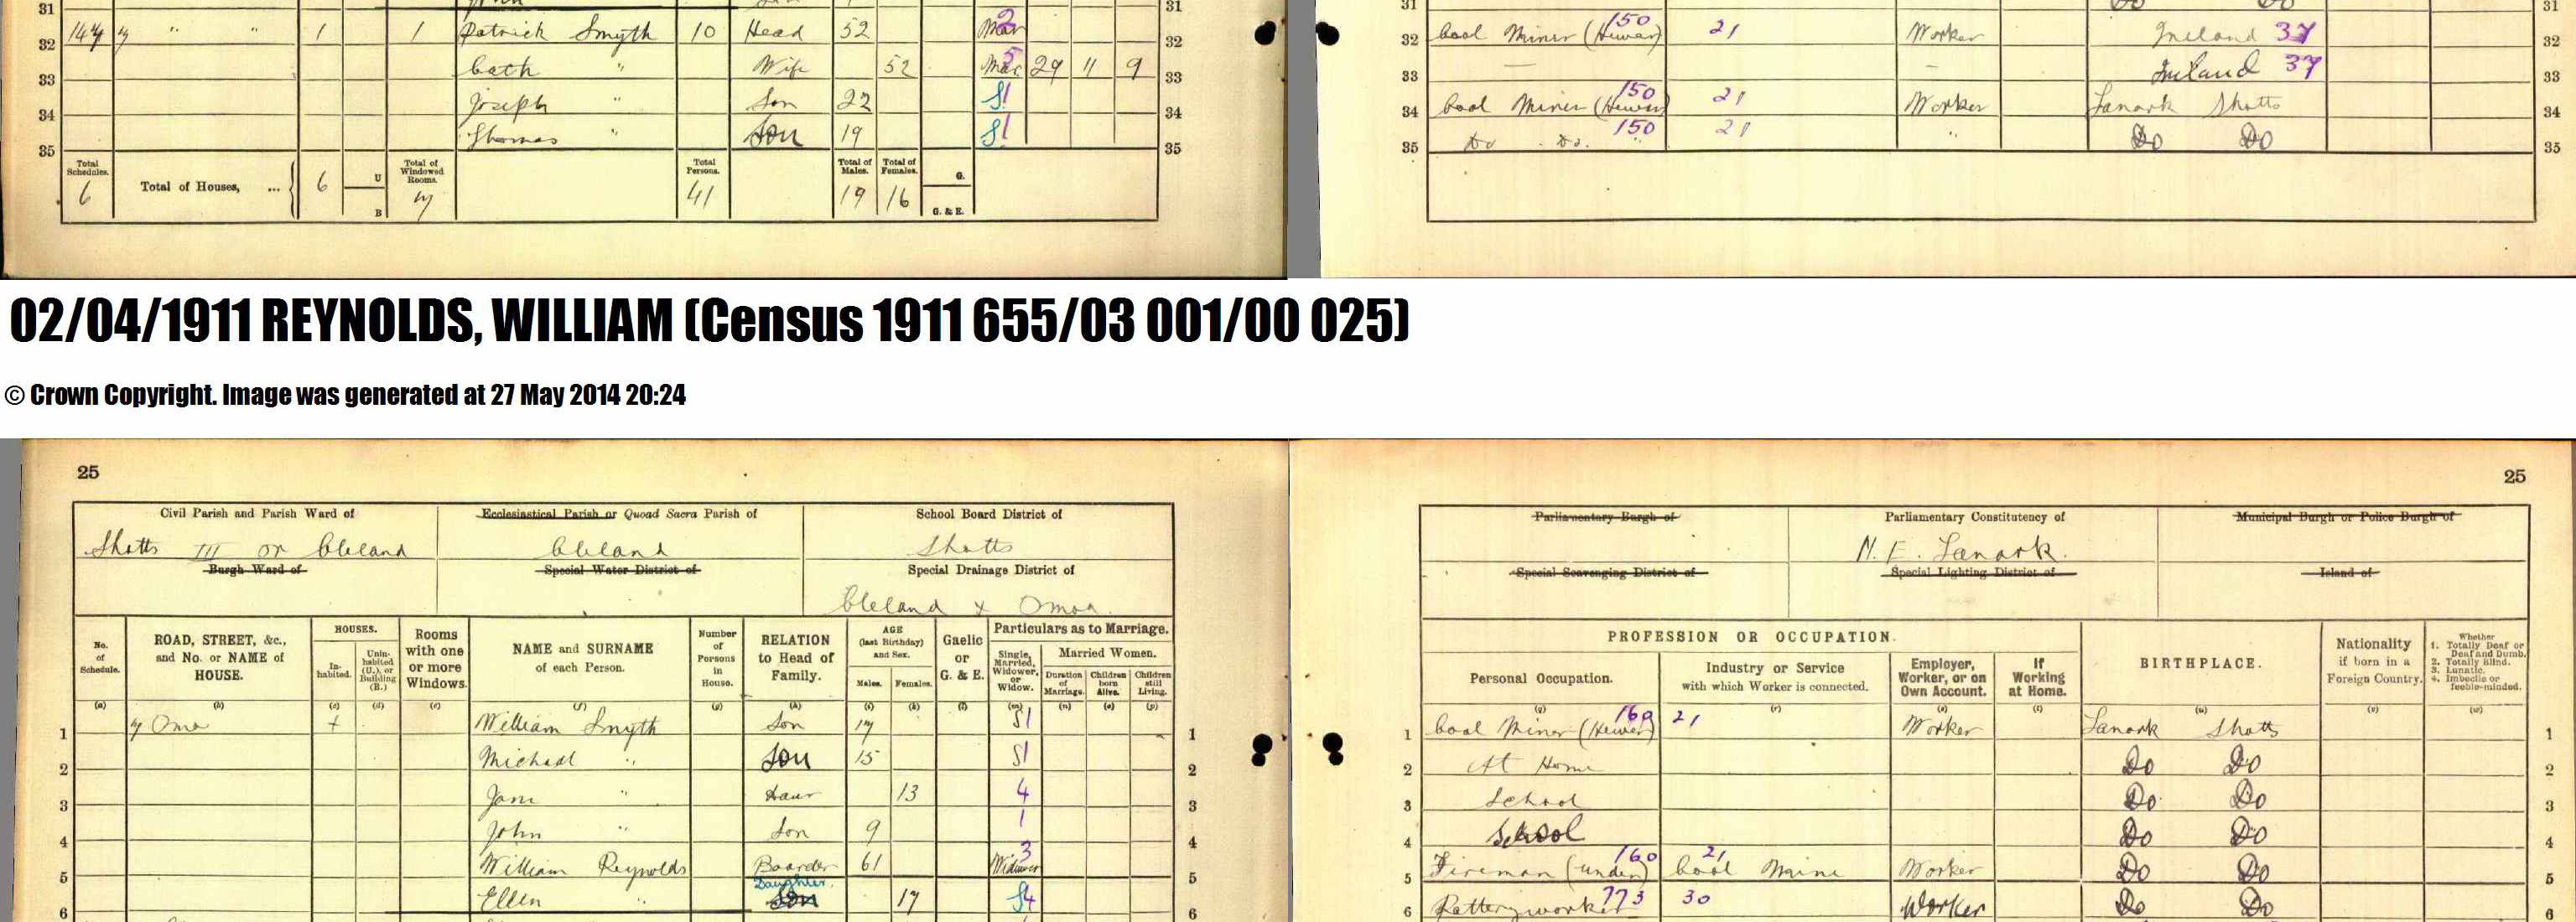 31 31 31
147 7 " " 1 1 Patrick Smyth 10 Head 52 Mar 2 Coal Miner (Hewer) 150 21 Worker Ireland 37
32 32 32 32
Cath " Wife 52 Mar 5 29 11 9 — — Ireland 37
33 33 33 33
Joseph " Son 22 S1 Coal Miner (Hewer) 150 21 Worker Lanark Shotts
34 34 34 34
Thomas " Son 19 S1 Do Do. 150 21 " Do Do
35 35 35 35
Total Schedules. 6 Total of Houses, ... 6 U B Total of Windowed Rooms. 7 Total Persons. 41 Total of Males. 19 Total of Females. 16 G. G. & E.
02/04/1911 REYNOLDS, WILLIAM (Census 1911 655/03 001/00 025)
© Crown Copyright. Image was generated at 27 May 2014 20:24
25 25
Civil Parish and Parish Ward of Ecclesiastical Parish or Quoad Sacra Parish of School Board District of Parliamentary Burgh of Parliamentary Constitutency of Municipal Burgh or Police Burgh of
Shotts III or Cleland Cleland Shotts N. E. Lanark.
Burgh Ward of Special Water District of Special Drainage District of Special Scavenging District of Special Lighting District of Island of
Cleland & Omoa.
No. of Schedule. (a) ROAD, STREET, &c., and No. or NAME of HOUSE. (b) HOUSES. Inhabited. (c) Uninhabited (U.), or Building (B.) (d) Rooms with one or more Windows. (e) NAME and SURNAME of each Person. (f) Number of Persons in House. (g) RELATION to Head of Family. (h) AGE (last Birthday) and Sex. Males. (i) Females. (k) Gaelic or G. & E. (l) Particulars as to Marriage. Single, Married, Widower, or Widow. (m) Married Women. Duration of Marriage. (n) Children born Alive. (o) Children still Living. (p)
PROFESSION OR OCCUPATION. Personal Occupation. (q) Industry or Service with which Worker is connected. (r) Employer, Worker, or on Own Account. (s) If Working at Home. (t) BIRTHPLACE. (u) Nationality if born in a Foreign Country. (v) Whether 1. Totally Deaf or Deaf and Dumb. 2. Totally Blind. 3. Lunatic. 4. Imbecile or feeble-minded. (w)
1 7 Omoa + William Smyth Son 17 S1 1 1 Coal Miner (Hewer) 160 21 Worker Lanark Shotts 1
2 Michael " Son 15 S1 2 2 At Home Do Do 2
3 Jane " Daur 13 4 3 3 School Do Do 3
4 John " Son 9 1 4 4 School Do Do 4
5 William Reynolds Boarder 61 Widower 3 5 5 Fireman (under) 160 21 Coal Mine Worker Do Do 5
6 Ellen " Daughter Son 17 S4 6 6 Potteryworker 773 30 Worker Do Do 6